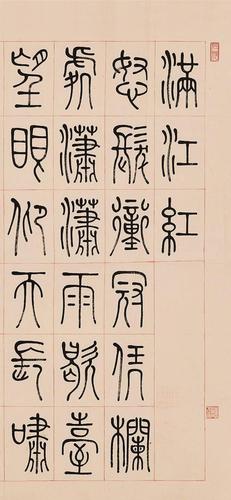 滿江紅
怒髮衝冠凭欄
處瀟瀟雨歇臺
望眼仰天長嘯